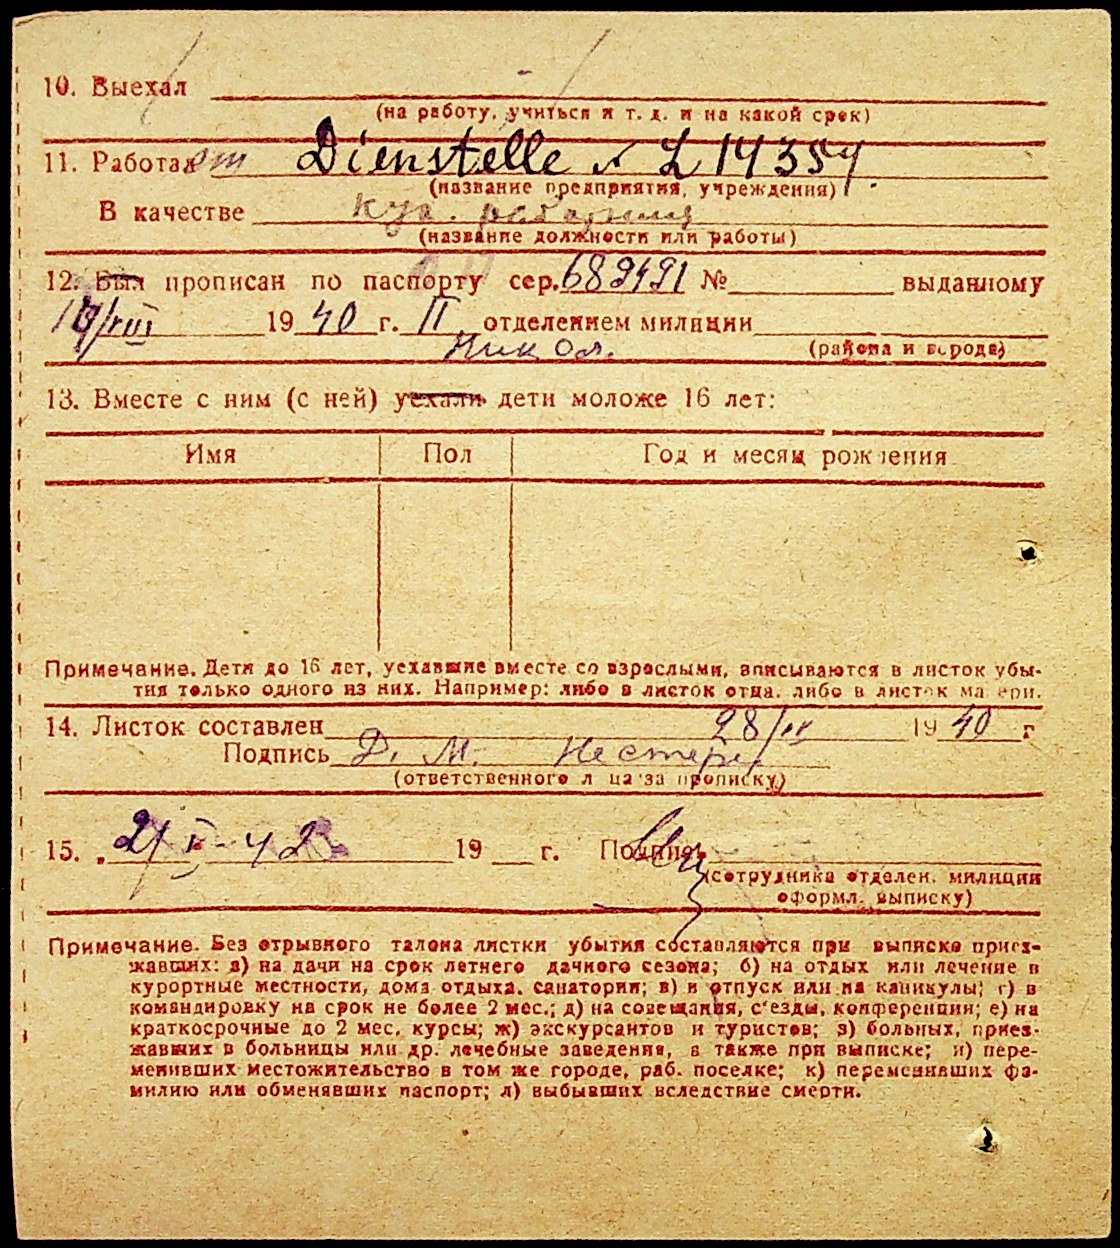 10. Выехал
(на работу, учиться и т. д. и на какой срок)
11. Работает Dienstelle № L 14357
(название предприятия, учреждения)
В качестве кух. работница
(название должности или работы)
12. Был прописан по паспорту сер. 689491 № выданному
19 40 г. II отделением милиции
Никол.
(района и города)
13. Вместе с ним (с ней) уехали дети моложе 16 лет:
Имя Пол Год и месяц рождения
Примечание. Дети до 16 лет, уехавшие вместе со взрослыми, вписываются в листок убы-
тия только одного из них. Например: либо в листок отца, либо в листок матери.
14. Листок составлен 28/IV 19 40 г
Подпись Д. М.
(ответственного лица за прописку)
15. 19 г. Подпись
(сотрудника отделен. милиции
оформл. выписку)
Примечание. Без отрывного талона листки убытия составляются при выписке приез-
жавших: а) на дачи на срок летнего дачного сезона; б) на отдых или лечение в
курортные местности, дома отдыха, санатории; в) в отпуск или на каникулы; г) в
командировку на срок не более 2 мес.; д) на совещания, с'езды, конференции; е) на
краткосрочные до 2 мес. курсы; ж) экскурсантов и туристов; з) больных, приез-
жавших в больницы или др. лечебные заведения, а также при выписке; и) пере-
менивших местожительство в том же городе, раб. поселке; к) переменивших фа-
милию или обменявших паспорт; л) выбывших вследствие смерти.